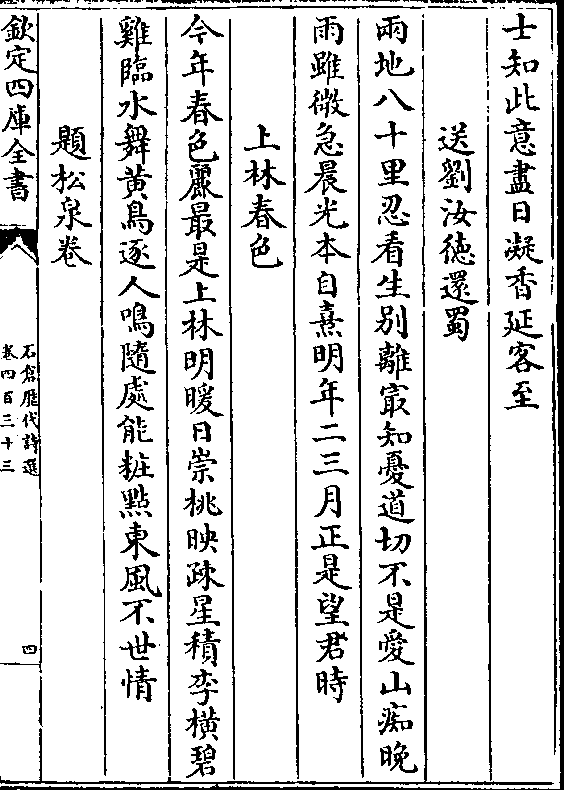 士知此意盡日凝香延客至
送劉汝徳還蜀
兩地八十里忍看生别離㝡知憂道切不是愛山痴晚
雨雖微急晨光本自熹明年二三月正是望君時
上林春色
今年春色麗最是上林明暖日崇桃映疎星積李横碧
雞臨水舞黄鳥逐人鳴隨處能粧點東風不世情
題松泉卷
欽定四庫全書
石倉歴代詩選
卷四百三十三
四